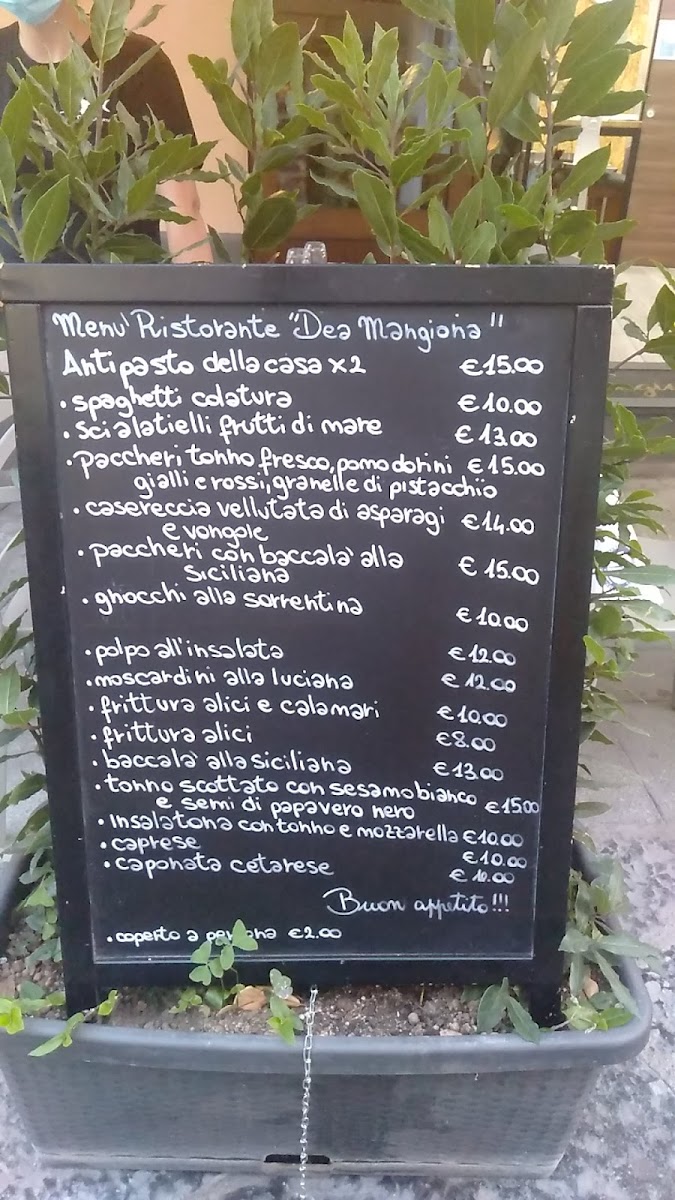 Menù Ristorante "Dea Mangiona"
Antipasto della casa x2 €15.00
• spaghetti colatura €10.00
• scialatielli frutti di mare €13.00
• paccheri, tonno fresco, pomodorini €15.00
gialli e rossi, granelle di pistacchio
• casereccia vellutata di asparagi €14.00
e vongole
• paccheri con baccala' alla €15.00
siciliana
• gnocchi alla sorrentina €10.00
• polpo all'insalata €12.00
• moscardini alla luciana €12.00
• frittura alici e calamari €10.00
• frittura alici €8.00
• baccala' alla siciliana €13.00
• tonno scottato con sesamo bianco €15.00
e semi di papavero nero
• insalatona con tonno e mozzarella €10.00
• caprese €10.00
• caponata cetarese €10.00
Buon appetito!!!
• coperto a persona €2.00